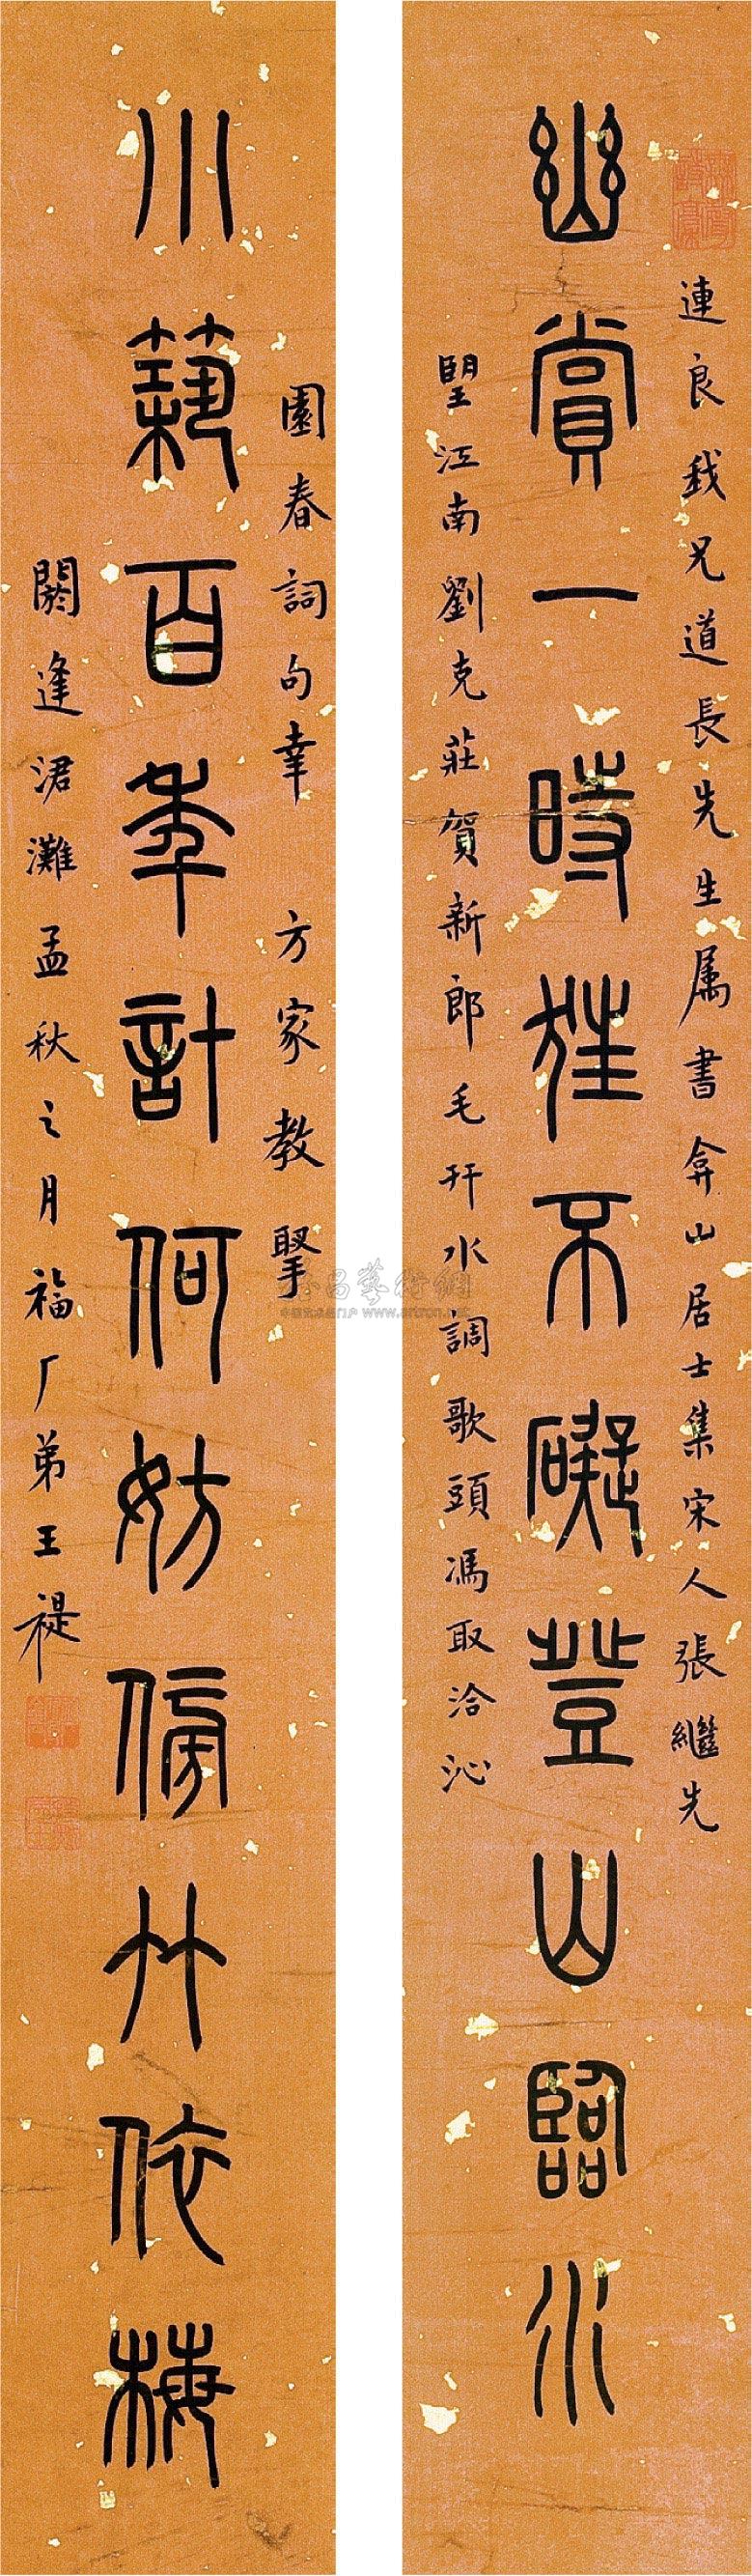 連良我兄道長先生属書弇山居士集宋人張繼先
幽賞一時狂不礙登山臨水
朢江南劉克莊賀新郎毛幵水調歌頭馮取洽沁
園春詞句幸 方家教
小蓺百年計何妨傍竹依梅
閼逢涒灘孟秋之月福厂弟王禔
昌藝術網
www.artron.net